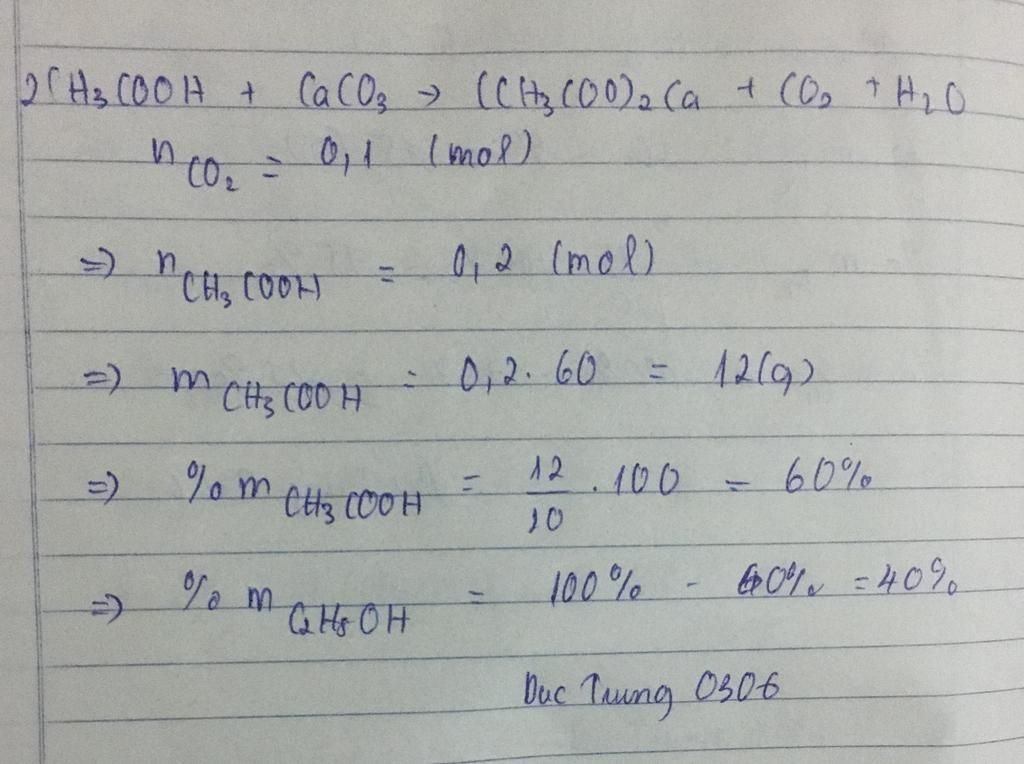 2CH3COOH + CaCO3 → (CH3COO)2Ca + CO2 + H2O
nCO2 = 0,1 (mol)
=> nCH3COOH = 0,2 (mol)
=> mCH3COOH = 0,2. 60 = 12(g)
=> %mCH3COOH = 12/20 . 100 = 60%
=> %mC2H5OH = 100% - 60% = 40%
Duc Trung 0306